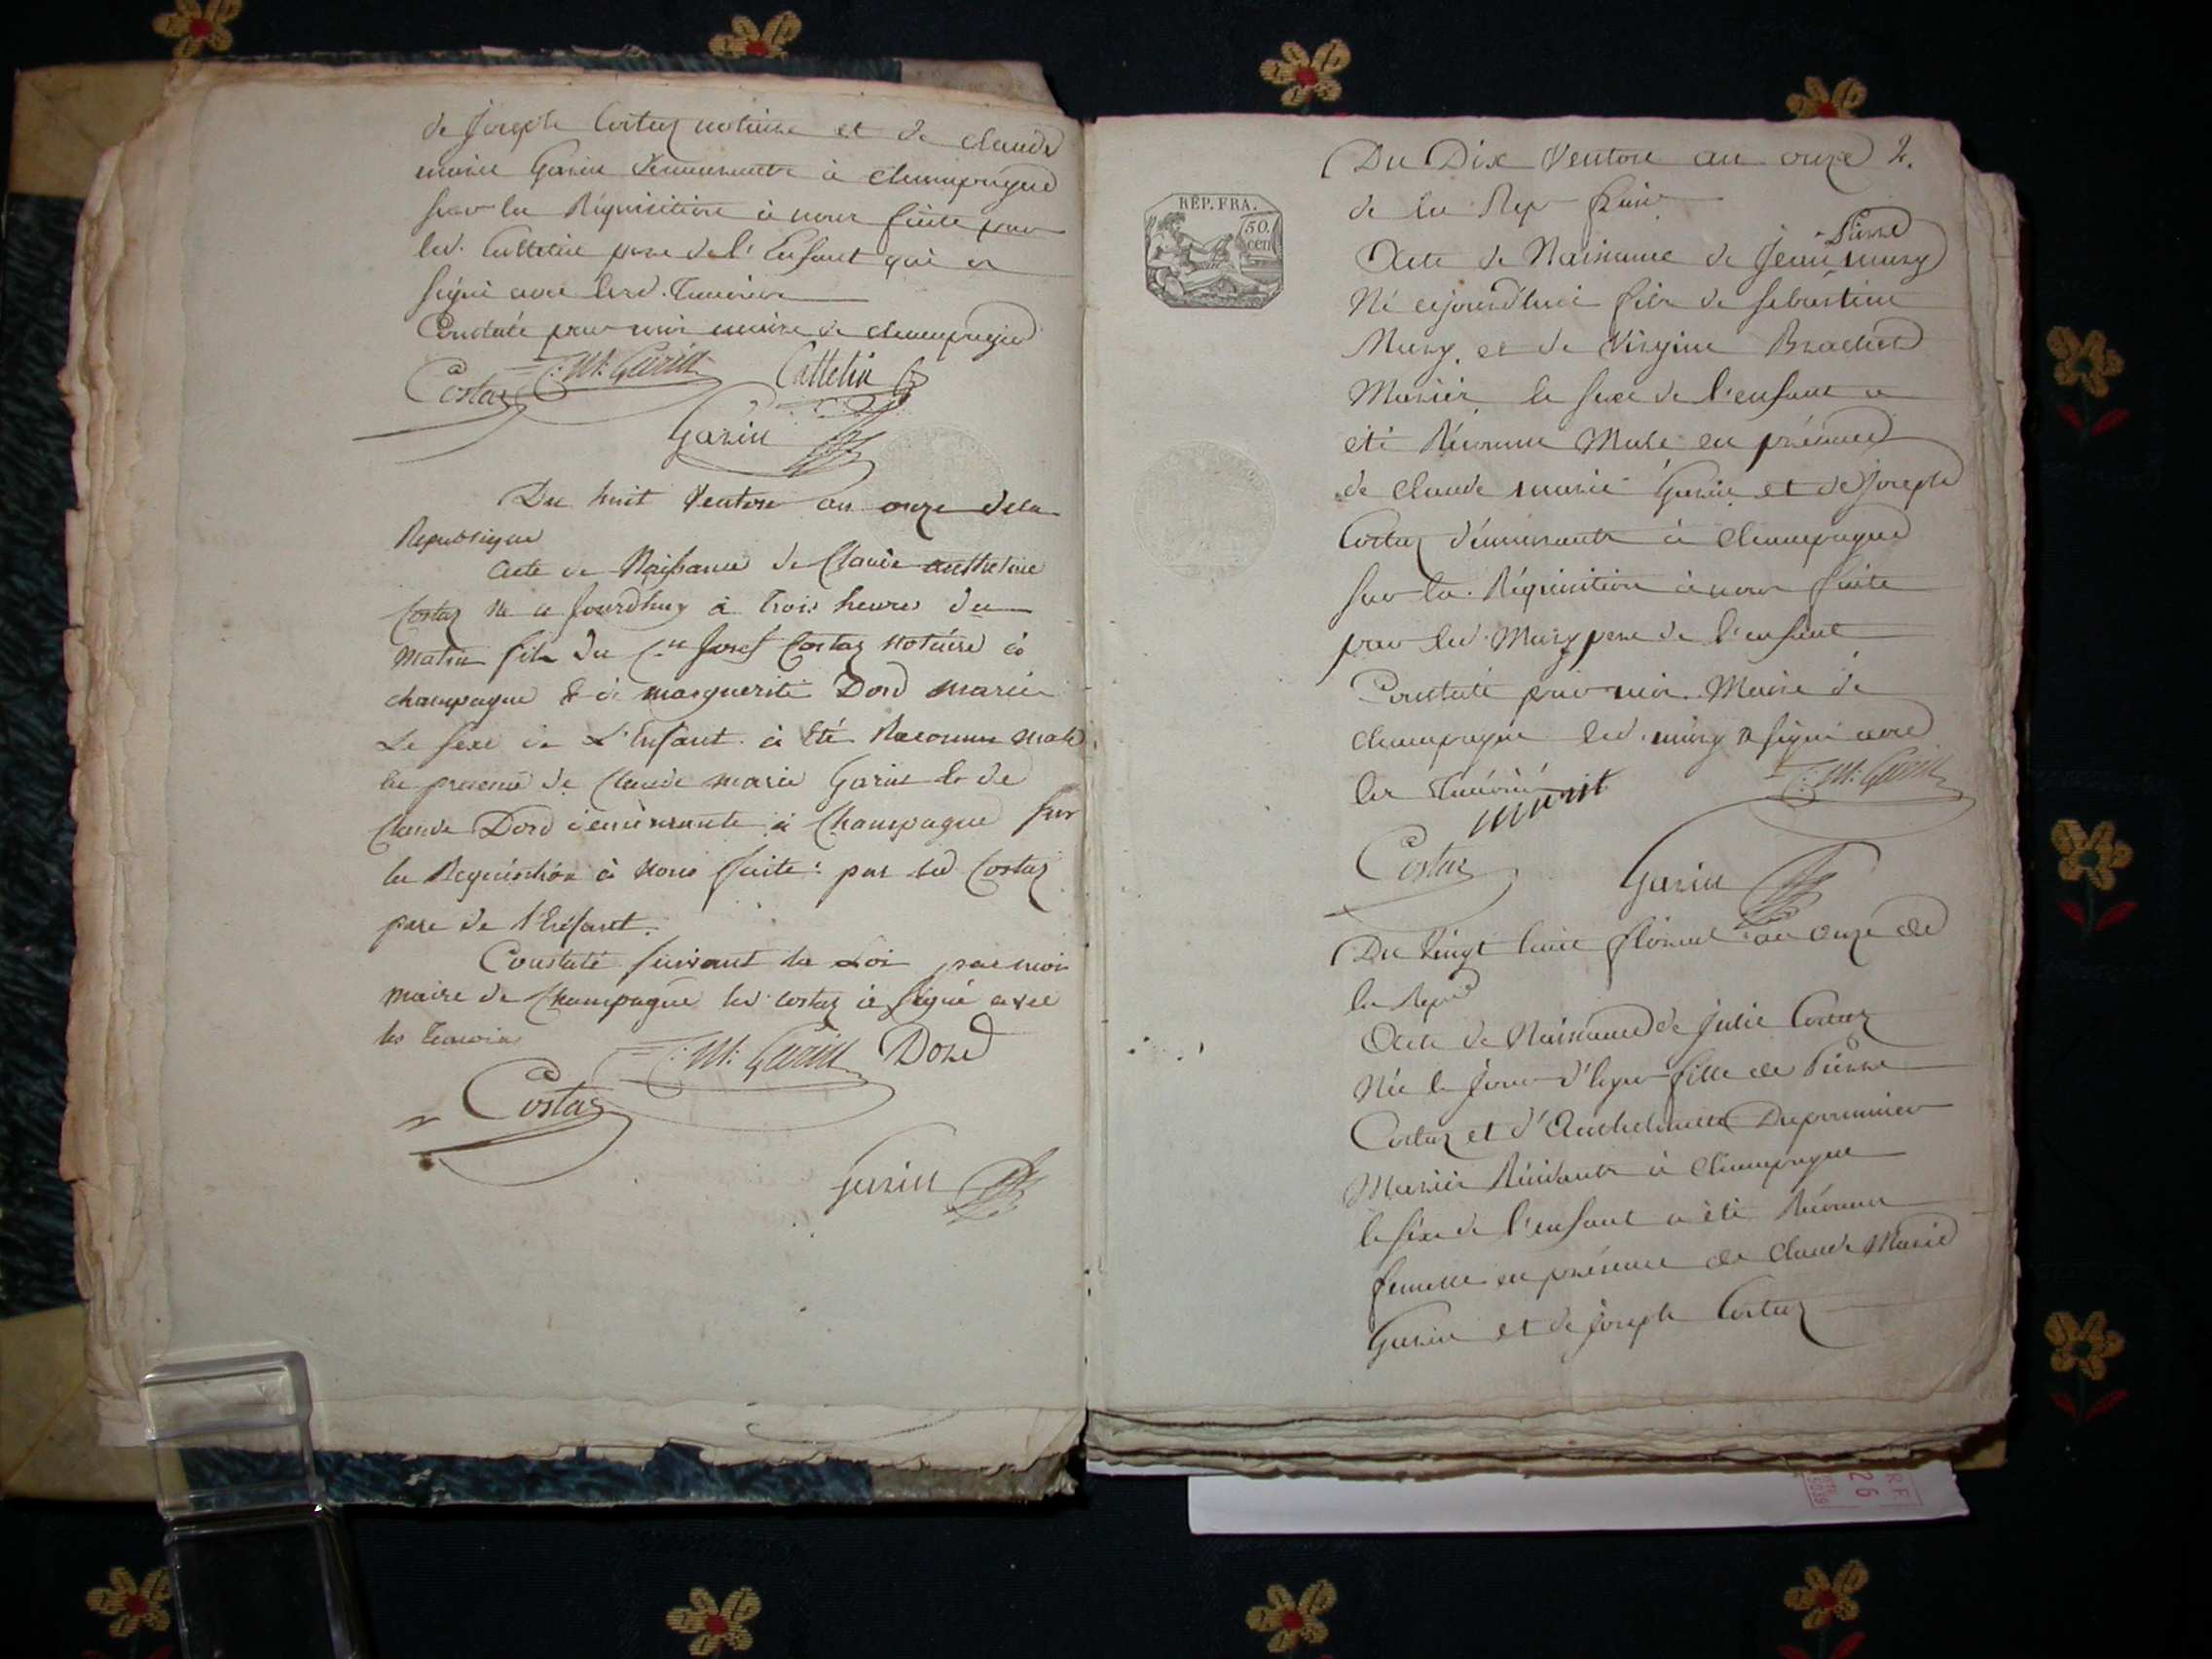 de Joseph Costaz notaire et de claude
marie Garin demeurants à champagne
sur la Réquisition à nous faite par
led. Cattelin pere de l'Enfant qui a
signé avec lesd. Temoins
Constaté par moi maire de champagne
Costaz C: M: Garin Cattelin
Garin
Du huit Ventose an onze dela
Republique
acte de Naissance de Claude anthelme
Costaz né ce Jourdhuy à trois heures du
matin fils du Cen Josef Costaz Notaire à
champagne & de marguerite Dord mariés
Le sexe de L'Enfant à été Reconnu male
en presence de Claude marie Garin & de
Claude Dord demeurants à Champagne sur
la Requisition à Nous faite par led Costaz
pere de l'Enfant.
Constaté suivant la Loi par moi
maire de Champagne led. costaz à signé avec
les temoins
C: M: Garin Dord
Costaz
Garin
Du Dix Ventose an onze 2.
de la Rep. fran.
REP. FRA.
50. cen
Pierre
Acte de Naissance de Jean mury
Né cejourd'hui fils de sebastien
Mury et de Virgine Brachet
Mariés le sexe de l'enfant a
été Réconnu Male en présence
de claude marie Garin et de Joseph
Costaz démeurants à Champagne
sur la Réquisition à nous faite
par led. Mury pere de l'enfant
Constaté par moi Maire de
champagne led. mury a signé avec
les Témoins
C: M: Garin
Costaz
Garin
Du Vingt huit floreal an onze de
la Rep.
Acte de Naissance de Julie Costaz
Née le jour d'hyer fille de Pierre
Costaz et d'Anthelmette
Mariés Résidants à Champagne
le sexe de l'enfant a été Réconnu
femelle en présence de Claude Marie
Garin et de Joseph Costaz
R.F.
26